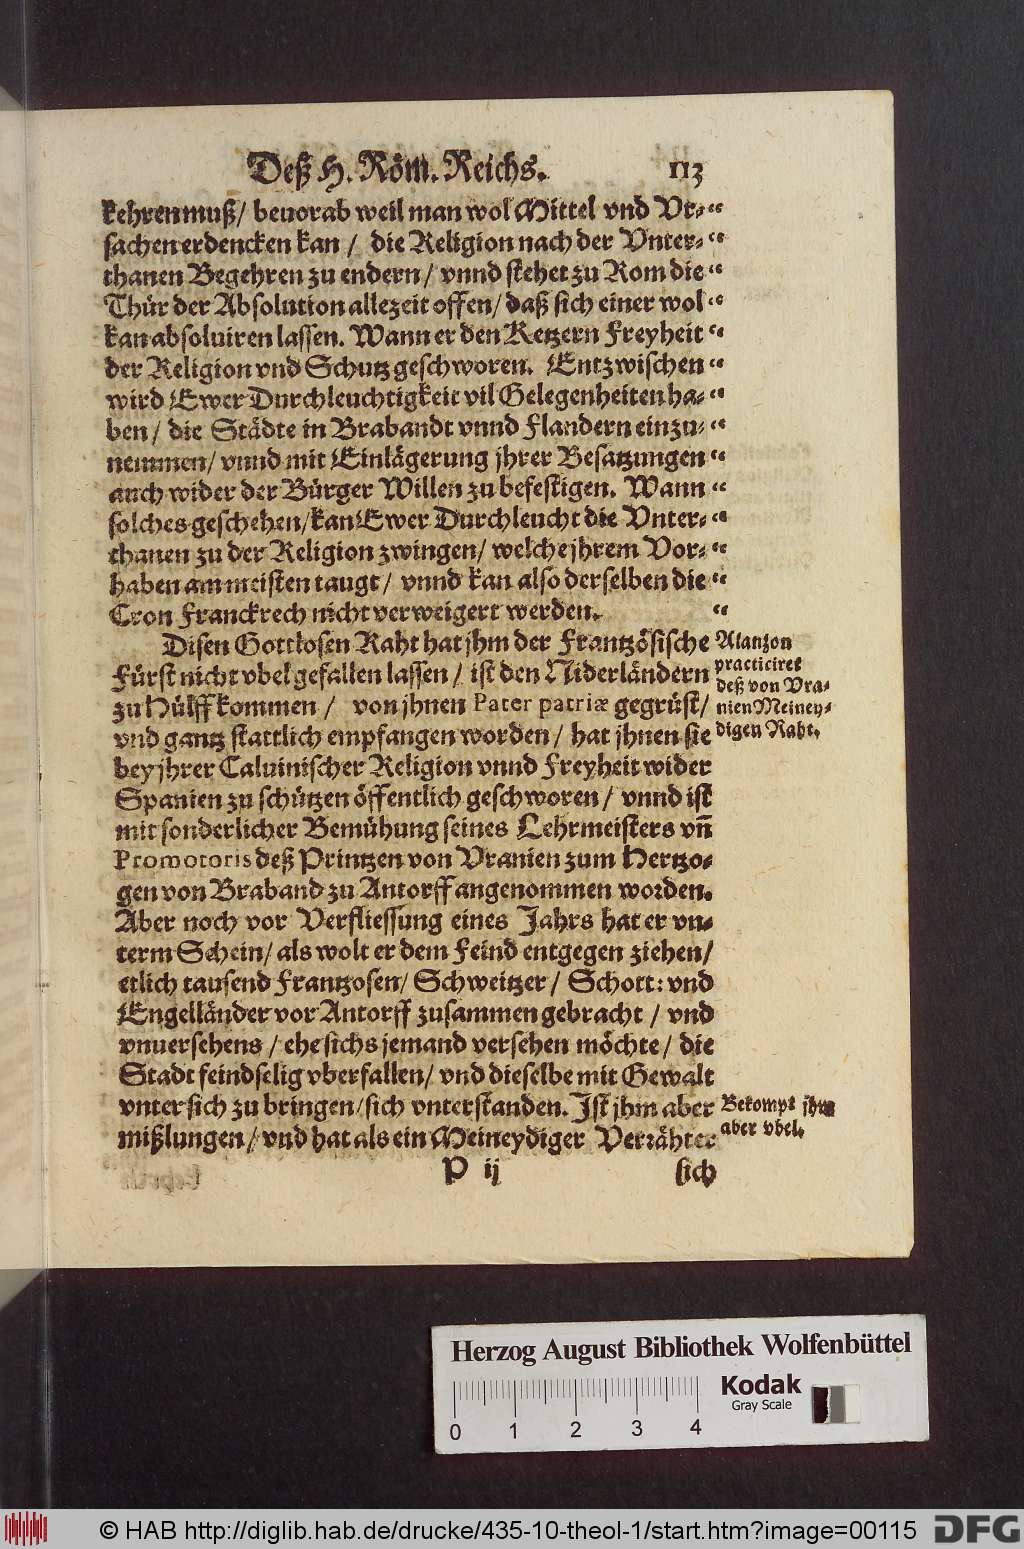 Deß H. Röm. Reichs. 113
kehren muß / beuorab weil man wol Mittel vnd Vr⸗ “
sachen erdencken kan / die Religion nach der Vnter⸗ “
thanen Begehren zu endern / vnnd stehet zu Rom die “
Thür der Absolution allezeit offen / daß sich einer wol “
kan absoluiren lassen. Wann er den Ketzern Freyheit “
der Religion vnd Schutz geschworen. Entzwischen “
wird Ewer Durchleuchtigkeit vil Gelegenheiten ha⸗ “
ben / die Städte in Brabandt vnnd Flandern einzu⸗ “
nemmen / vnnd mit Einlägerung jhrer Besatzungen “
auch wider der Bürger Willen zu befestigen. Wann “
solches geschehen / kan Ewer Durchleucht die Vnter⸗ “
thanen zu der Religion zwingen / welche jhrem Vor⸗ “
haben am meisten taugt / vnnd kan also derselben die “
Cron Franckrech nicht verweigert werden. “
Disen Gottlosen Raht hat jhm der Frantzösische
Fürst nicht vbel gefallen lassen / ist den Niderländern
zu Hülff kommen / von jhnen Pater patriæ gegrüst /
vnd gantz stattlich empfangen worden / hat jhnen sie
bey jhrer Caluinischer Religion vnnd Freyheit wider
Spanien zu schützen öffentlich geschworen / vnnd ist
mit sonderlicher Bemühung seines Lehrmeisters vn̄
Promotoris deß Printzen von Vranien zum Hertzo⸗
gen von Braband zu Antorff angenommen worden.
Aber noch vor Verfliessung eines Jahrs hat er vn⸗
term Schein / als wolt er dem Feind entgegen ziehen /
etlich tausend Frantzosen / Schweitzer / Schott: vnd
Engelländer vor Antorff zusammen gebracht / vnd
vnuersehens / ehe sichs jemand versehen möchte / die
Stadt feindselig vberfallen / vnd dieselbe mit Gewalt
vnter sich zu bringen / sich vnterstanden. Ist jhm aber
mißlungen / vnd hat als ein Meineydiger Verrähter
P ij sich
Alanzon
practiciret
deß von Vra⸗
nien Meiney⸗
digen Raht.
Bekompt jhm
aber vbel.
Herzog August Bibliothek Wolfenbüttel
Kodak
Gray Scale
0 1 2 3 4
© HAB http://diglib.hab.de/drucke/435-10-theol-1/start.htm?image=00115
DFG